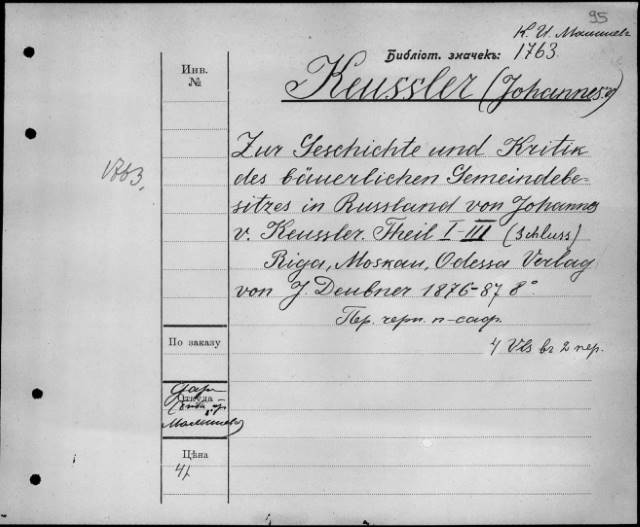 95
К. И. Малышев
Библіот. значекъ: 1763.
Инв.
№
Keussler (Johannes v)
Zur Geschichte und Kritik
des bäuerlichen Gemeindebe-
sitzes in Russland von Johannes
1763.
v. Keussler. Theil I-III (Schluss)
Riga, Moskau, Odessa Verlag
von J. Deubner 1876-87 8°
Пер. черн. п-саф.
По заказу
4 Vls въ 2 пер.
Откуда
Малышев
Цѣна